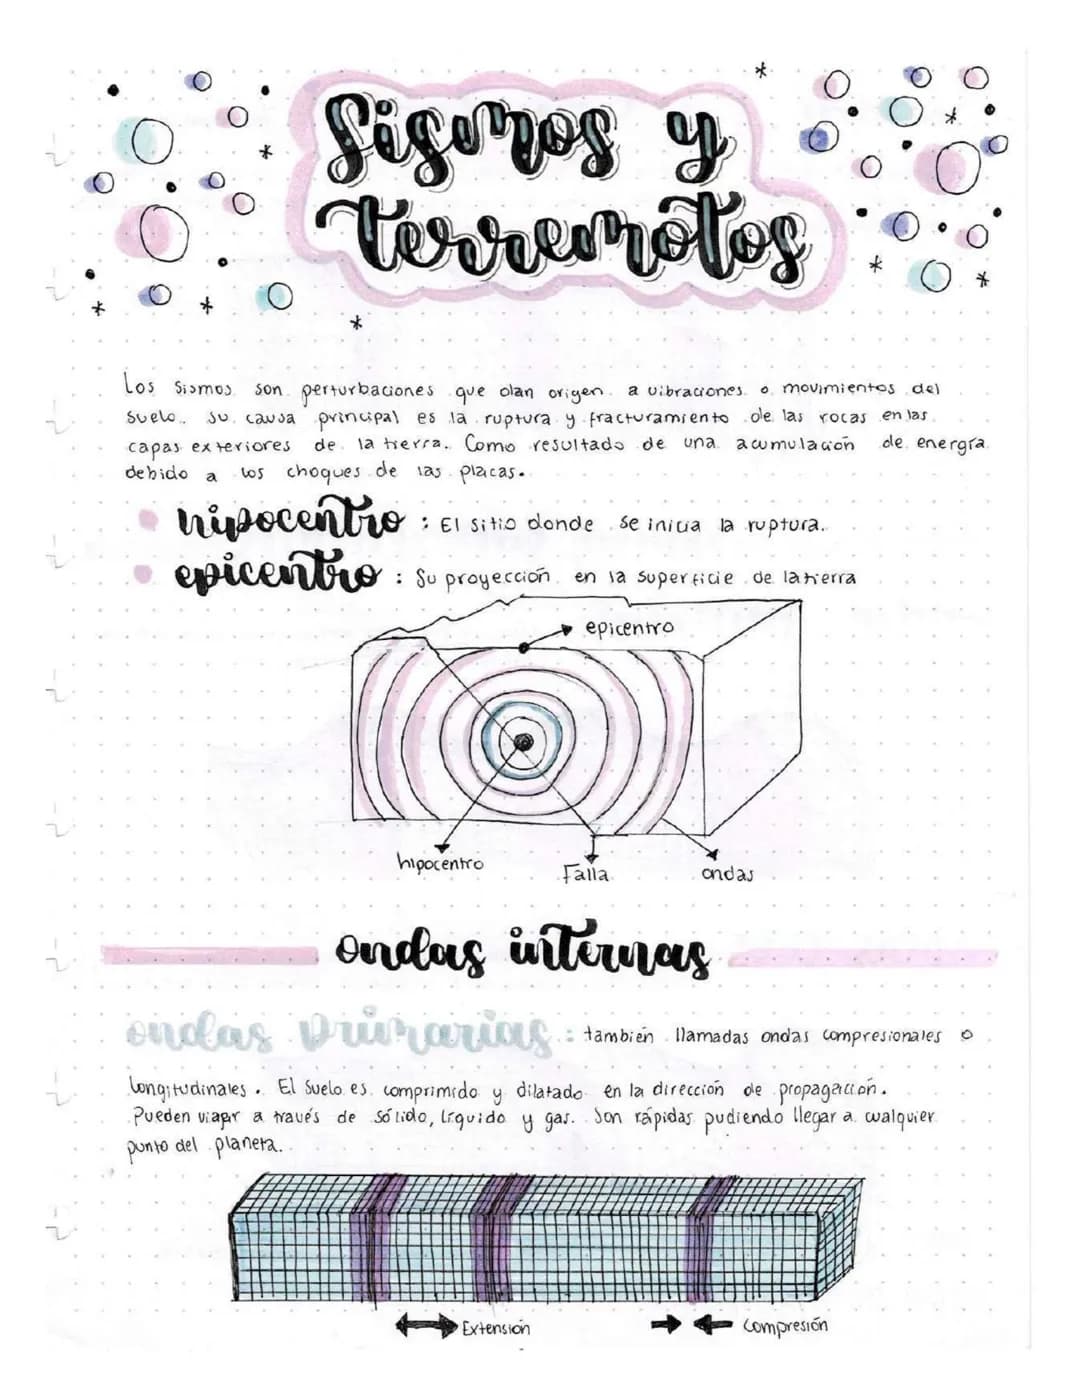 Sismos y
terremotos
Los Sismos son perturbaciones que dan origen a vibraciones o movimientos del
suelo. Su causa principal es la ruptura y fracturamiento de las rocas en las
capas exteriores de la tierra. Como resultado de una acumulación de energía
debido a los choques de las placas.
hipocentro : El sitio donde se inicia la ruptura.
epicentro : Su proyección en la superficie de la tierra
epicentro
hipocentro
Falla
ondas
ondas internas
ondas primarias : también llamadas ondas compresionales o
longitudinales. El suelo es comprimido y dilatado en la dirección de propagación.
Pueden viajar a través de sólido, líquido y gas. Son rápidas pudiendo llegar a cualquier
punto del planeta.
Extensión
Compresión